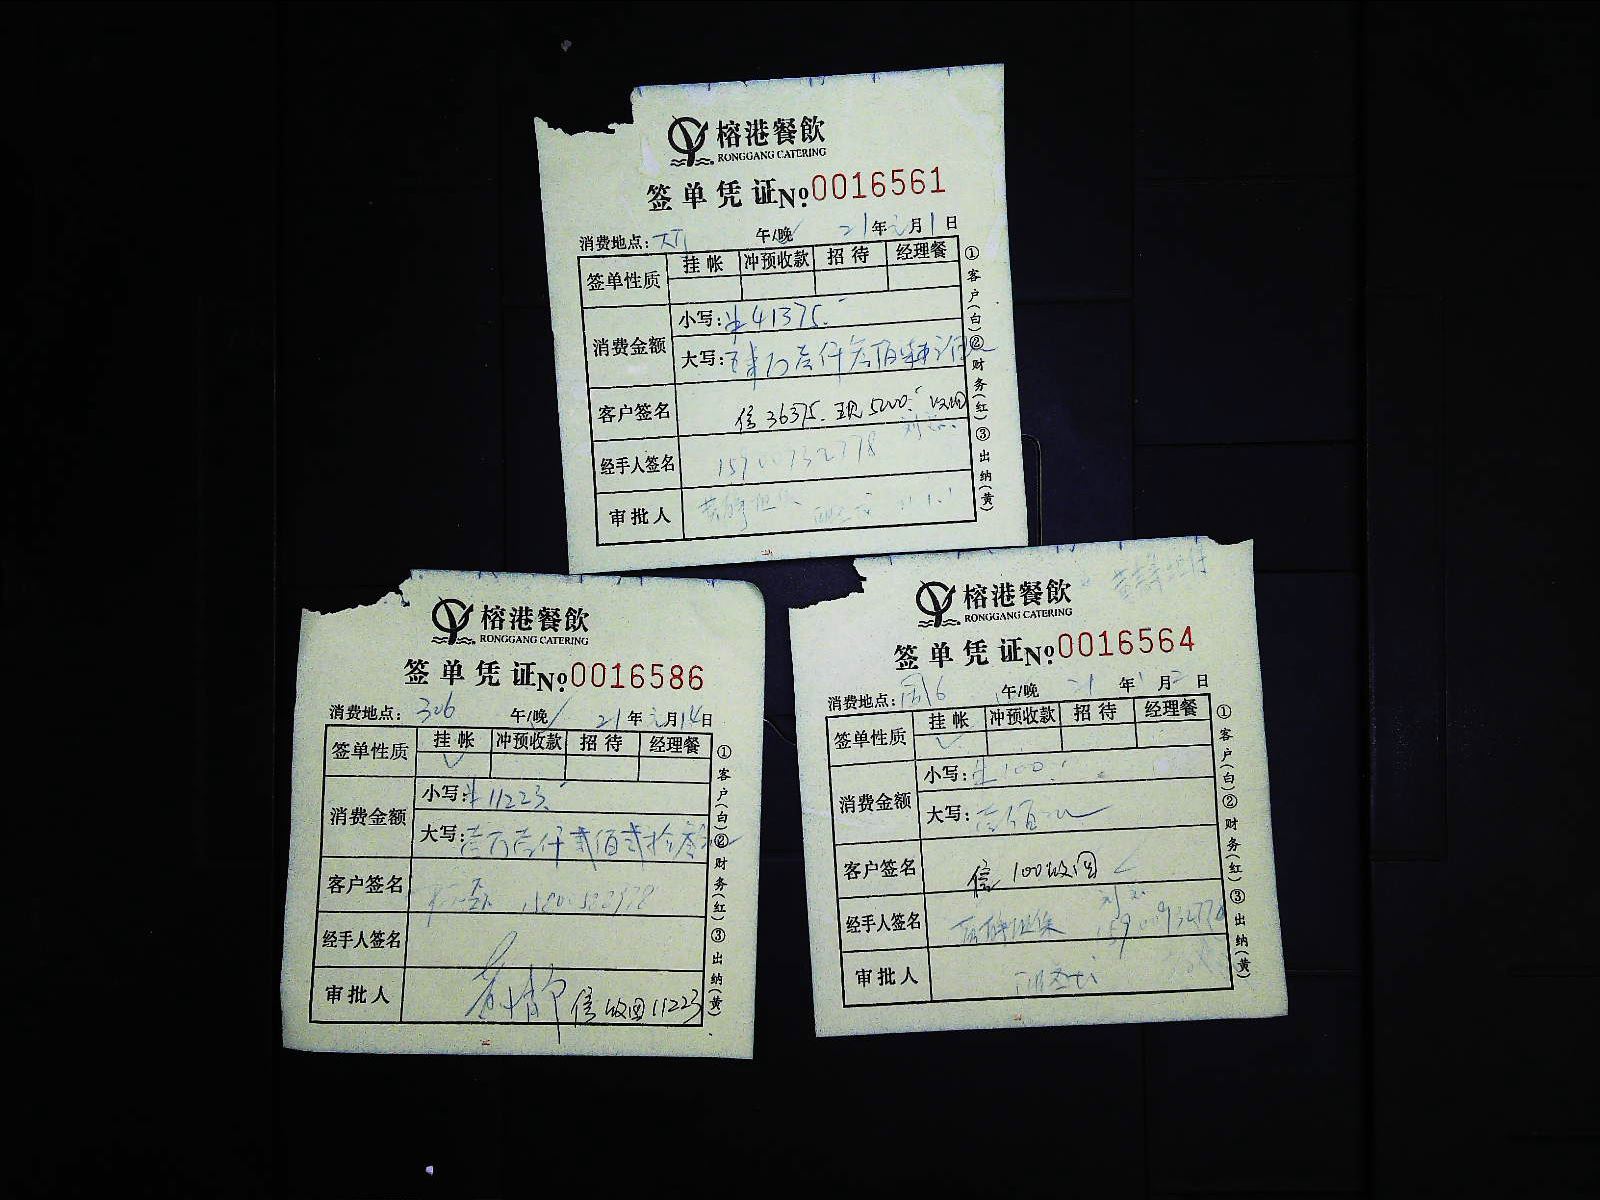 榕港餐飲
RONGGANG CATERING
签单凭证 No 0016561
消费地点: 午/晚 21年元月1日
签单性质 挂帐 冲预收款 招待 经理餐
消费金额 小写: 41375.
大写: 肆万壹仟叁佰
客户签名 信 36375. 现 5000. 收回
经手人签名
审批人 21.1.1
①客户(白)②财务(红)③出纳(黄)
榕港餐飲
RONGGANG CATERING
签单凭证 No 0016586
消费地点: 306 午/晚 21年元月14日
签单性质 挂帐 冲预收款 招待 经理餐
消费金额 小写: 11223.
大写: 壹万壹仟贰佰贰拾叁
客户签名
经手人签名
审批人 信收回11223
①客户(白)②财务(红)③出纳(黄)
榕港餐飲
RONGGANG CATERING
签单凭证 No 0016564
消费地点: 午/晚 21年1月2日
签单性质 挂帐 冲预收款 招待 经理餐
消费金额 小写: 100.
大写: 壹佰元
客户签名 信 100收回
经手人签名
审批人
①客户(白)②财务(红)③出纳(黄)